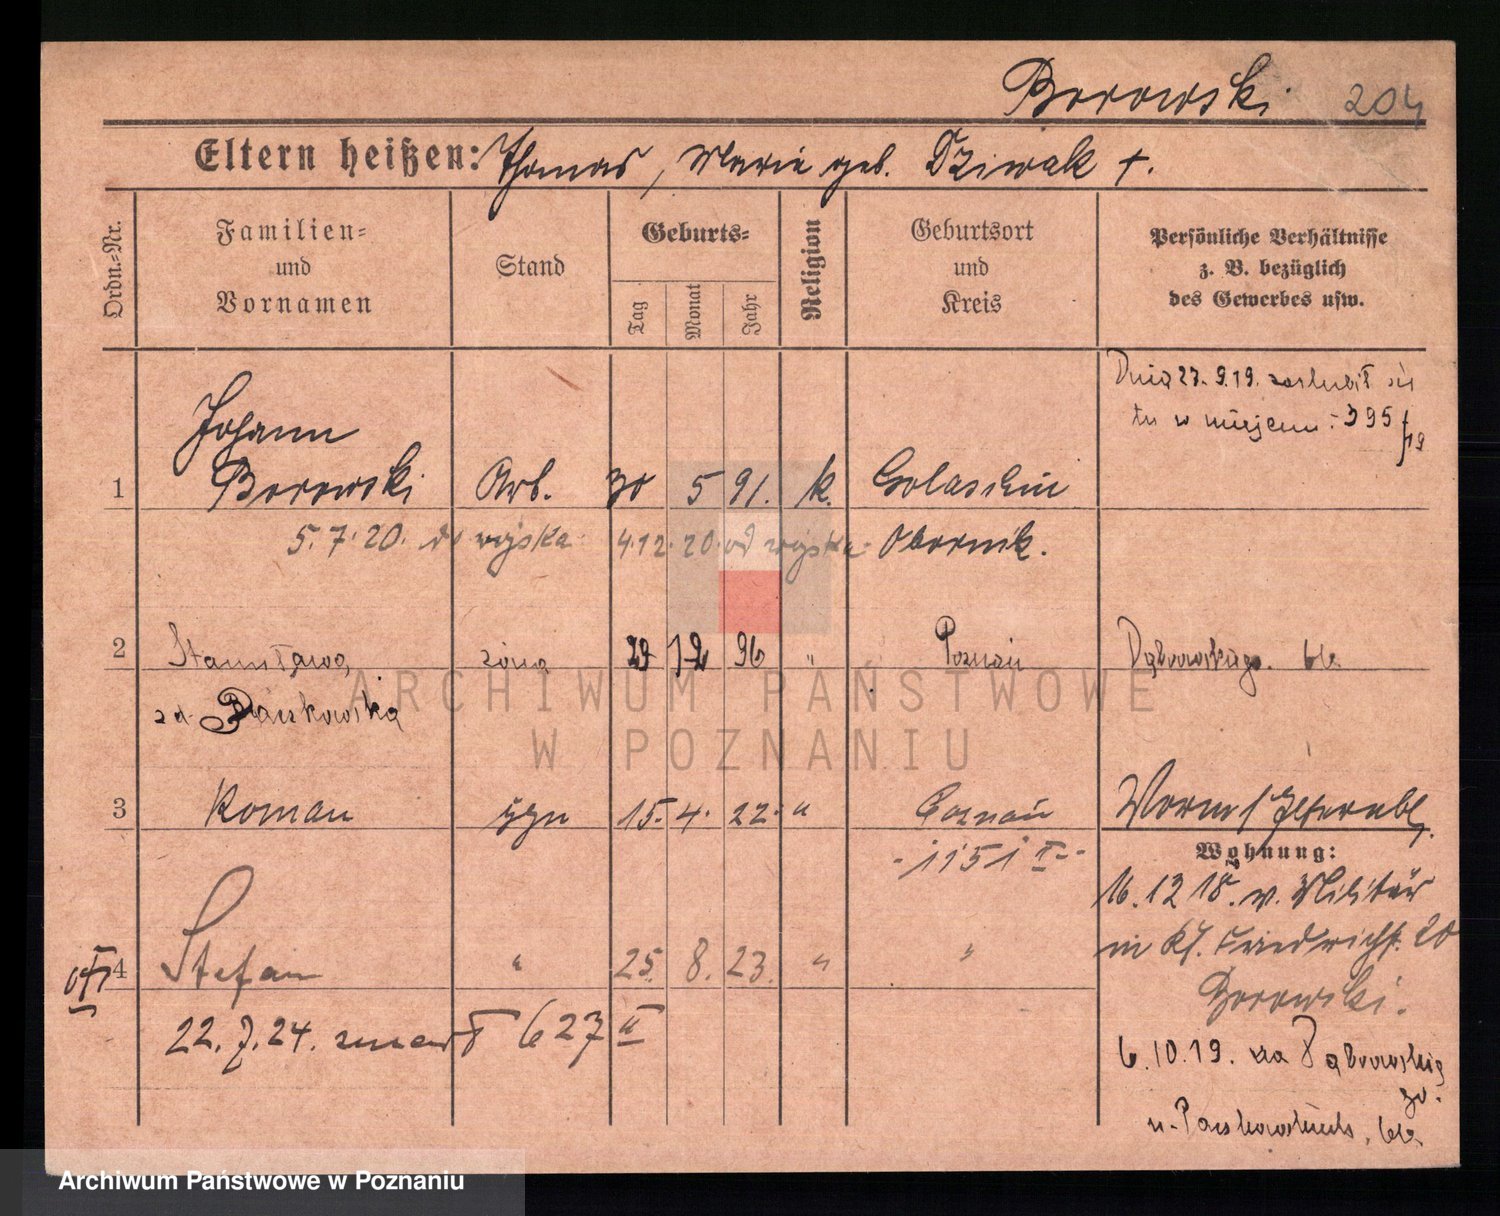 Borowski 204
Eltern heißen: Thomas, Marie geb. Dziwak †.
Ordn.-Nr.
Familien-
und
Vornamen
Stand
Geburts-
Tag
Monat
Jahr
Religion
Geburtsort
und
Kreis
Persönliche Verhältnisse
z. B. bezüglich
des Gewerbes usw.
Dnia 27.9.19. zaślubił się
tu w miejscu : 395/19
Johann
1 Borowski Arb. 30 5 91. k. Golaschin
5.7.20. do wojska 4.12.20. od wojska Obornik.
2 Stanisława żona 29 12 96 " Poznań Dąbrowskiego. 66
zd. Paczkowska
3 Roman syn 15. 4. 22. " Poznań
-1151 II-
Wohnung:
16.12 18. v. Militär
in Kl. Friedrichst. 20
Borowski.
4 Stefan " 25 8. 23 " "
22.7.24. zmarł 627 II
6.10.19. na Dąbrowskiego
u.
ARCHIWUM PAŃSTWOWE
W POZNANIU
Archiwum Państwowe w Poznaniu